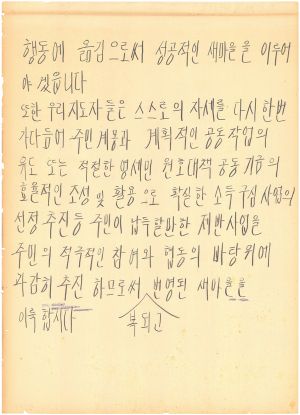 행동에 옮김으로써 성공적인 새마을을 이루어
야 겠읍니다
또한 우리 지도자들은 스스로의 자세를 다시 한번
가다듬어 주민 계몽과 계획적인 공동작업의
유도 또는 적절한 영세민 원호대책 공동기금의
효율적인 조성 및 활용으로 확실한 소득 사업의
선정 추진등 주민이 납득할만한 제반사업을
주민의 적극적인 참여와 협동의 바탕위에
과감히 추진 하므로써 번영된 새마을을
이룩 합시다 복되고